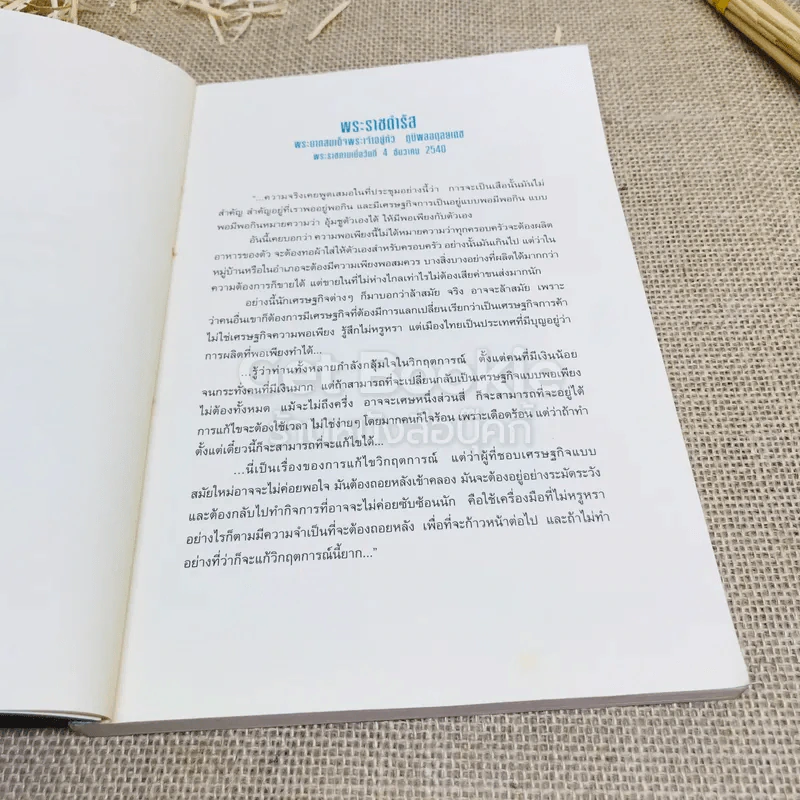 พระราชดำรัส
พระบาทสมเด็จพระเจ้าอยู่หัว ภูมิพลอดุลยเดช
พระราชทานเมื่อวันที่ 4 ธันวาคม 2540
"...ความจริงเคยพูดเสมอในที่ประชุมอย่างนี้ว่า การจะเป็นเสือนั้นมันไม่
สำคัญ สำคัญอยู่ที่เราพออยู่พอกิน และมีเศรษฐกิจการเป็นอยู่แบบพอมีพอกิน แบบ
พอมีพอกินหมายความว่า อุ้มชูตัวเองได้ ให้มีพอเพียงกับตัวเอง
อันนี้เคยบอกว่า ความพอเพียงนี้ไม่ได้หมายความว่าทุกครอบครัวจะต้องผลิต
อาหารของตัว จะต้องทอผ้าใส่ให้ตัวเองสำหรับครอบครัว อย่างนั้นมันเกินไป แต่ว่าใน
หมู่บ้านหรือในอำเภอจะต้องมีความเพียงพอสมควร บางสิ่งบางอย่างที่ผลิตได้มากกว่า
ความต้องการก็ขายได้ แต่ขายในที่ไม่ห่างไกลเท่าไรไม่ต้องเสียค่าขนส่งมากนัก
อย่างนี้นักเศรษฐกิจต่างๆ ก็มาบอกว่าล้าสมัย จริง อาจจะล้าสมัย เพราะ
ว่าคนอื่นเขาก็ต้องการมีเศรษฐกิจที่ต้องมีการแลกเปลี่ยนเรียกว่าเป็นเศรษฐกิจการค้า
ไม่ใช่เศรษฐกิจความพอเพียง รู้สึกไม่หรูหรา แต่เมืองไทยเป็นประเทศที่มีบุญอยู่ว่า
การผลิตที่พอเพียงทำได้...
...รู้ว่าท่านทั้งหลายกำลังกลุ้มใจในวิกฤตการณ์ ตั้งแต่คนที่มีเงินน้อย
จนกระทั่งคนที่มีเงินมาก แต่ถ้าสามารถที่จะเปลี่ยนกลับเป็นเศรษฐกิจแบบพอเพียง
ไม่ต้องทั้งหมด แม้จะไม่ถึงครึ่ง อาจจะเศษหนึ่งส่วนสี่ ก็จะสามารถที่จะอยู่ได้
การแก้ไขจะต้องใช้เวลา ไม่ใช่ง่ายๆ โดยมากคนก็ใจร้อน เพราะเดือดร้อน แต่ว่าถ้าทำ
ตั้งแต่เดี๋ยวนี้ก็จะสามารถที่จะแก้ไขได้...
...นี่เป็นเรื่องของการแก้ไขวิกฤตการณ์ แต่ว่าผู้ที่ชอบเศรษฐกิจแบบ
สมัยใหม่อาจจะไม่ค่อยพอใจ มันต้องถอยหลังเข้าคลอง มันจะต้องอยู่อย่างระมัดระวัง
และต้องกลับไปทำกิจการที่อาจจะไม่ค่อยซับซ้อนนัก คือใช้เครื่องมือที่ไม่หรูหรา
อย่างไรก็ตามมีความจำเป็นที่จะต้องถอยหลัง เพื่อที่จะก้าวหน้าต่อไป และถ้าไม่ทำ
อย่างที่ว่าก็จะแก้วิกฤตการณ์นี้ยาก..."